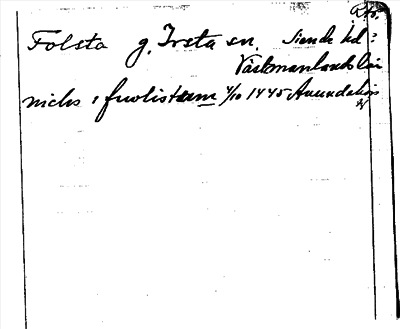 Folsta g. Irsta sn. Siende hd:
Västmanlands län
nichs i fwolistam 4/10 1445 Amundalius